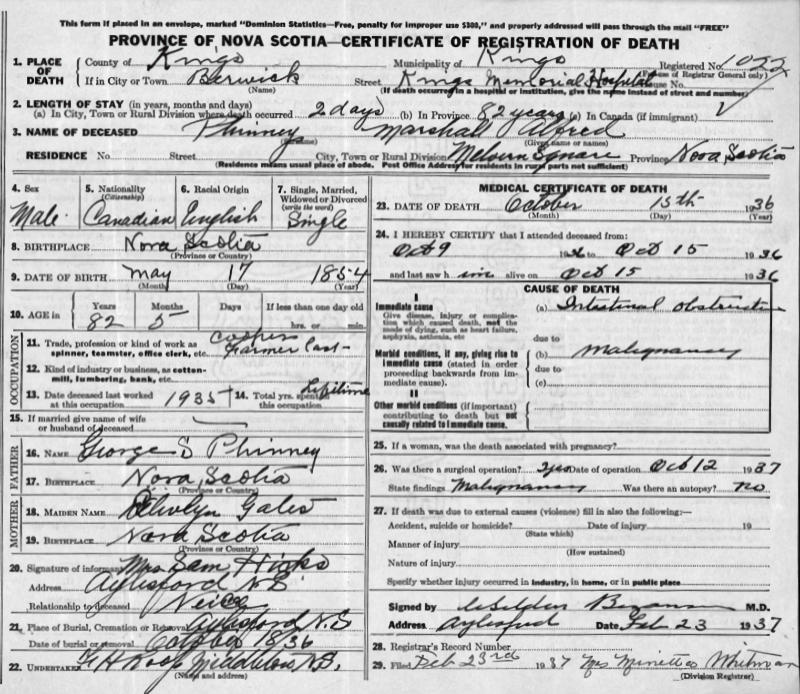 This form if placed in an envelope, marked "Dominion Statistics—Free, penalty for improper use $300," and properly addressed will pass through the mail "FREE"
PROVINCE OF NOVA SCOTIA—CERTIFICATE OF REGISTRATION OF DEATH
1. PLACE OF DEATH County of Kings Municipality of Kings Registered No. 1022
(For use of Registrar General only)
If in City or Town Berwick Street Kings Memorial Hospital House No.
(Name) (If death occurred in a hospital or institution, give the name instead of street and number)
2. LENGTH OF STAY (in years, months and days)
(a) In City, Town or Rural Division where death occurred 2 days (b) In Province 82 years (c) In Canada (if immigrant)
3. NAME OF DECEASED Phinney Marshall Alfred
(Given name or names)
RESIDENCE No. Street City, Town or Rural Division Melvern Square Province Nova Scotia
(Residence means usual place of abode. Post Office Address for residents in rural parts not sufficient)
4. Sex 5. Nationality (Citizenship) 6. Racial Origin 7. Single, Married, Widowed or Divorced (write the word)
Male Canadian English Single
8. BIRTHPLACE Nova Scotia
(Province or Country)
9. DATE OF BIRTH May 17 1854
(Month) (Day) (Year)
10. AGE in Years Months Days If less than one day old
82 5 hrs. or min.
OCCUPATION
11. Trade, profession or kind of work as spinner, teamster, office clerk, etc. Cooper Farmer
12. Kind of industry or business, as cotton-mill, lumbering, bank, etc.
13. Date deceased last worked at this occupation 1935 14. Total yrs. spent in this occupation Lifetime
15. If married give name of wife or husband of deceased
FATHER
16. NAME George S Phinney
17. BIRTHPLACE Nova Scotia
(Province or Country)
MOTHER
18. MAIDEN NAME Gates
19. BIRTHPLACE Nova Scotia
(Province or Country)
20. Signature of informant Mrs Sam Hicks
Address Aylesford N.S.
Relationship to deceased Neice
21. Place of Burial, Cremation or Removal Aylesford N.S
Date of burial or removal October 18/36
22. UNDERTAKER Middleton N.S.
(Name and address)
MEDICAL CERTIFICATE OF DEATH
23. DATE OF DEATH October 15th 1936
(Month) (Day) (Year)
24. I HEREBY CERTIFY that I attended deceased from:
Oct 9 1936 to Oct 15 1936
and last saw him alive on Oct 15 1936
CAUSE OF DEATH
I
Immediate cause (a) Intestinal obstruction
Give disease, injury or complication which caused death, not the mode of dying, such as heart failure, asphyxia, asthenia, etc
due to
Morbid conditions, if any, giving rise to immediate cause (stated in order proceeding backwards from immediate cause). (b) Malignancy
due to
(c)
II
Other morbid conditions (if important) contributing to death but not causally related to immediate cause.
25. If a woman, was the death associated with pregnancy?
26. Was there a surgical operation? yes Date of operation Oct 12 1937
State findings Malignancy Was there an autopsy? no
27. If death was due to external causes (violence) fill in also the following:—
Accident, suicide or homicide? Date of injury 19
(State which)
Manner of injury
(How sustained)
Nature of injury
Specify whether injury occurred in industry, in home, or in public place
Signed by M.D.
Address Aylesford Date Feb 23 1937
28. Registrar's Record Number
29. Filed Feb 23rd 1937 Mrs Whitman
(Division Registrar)